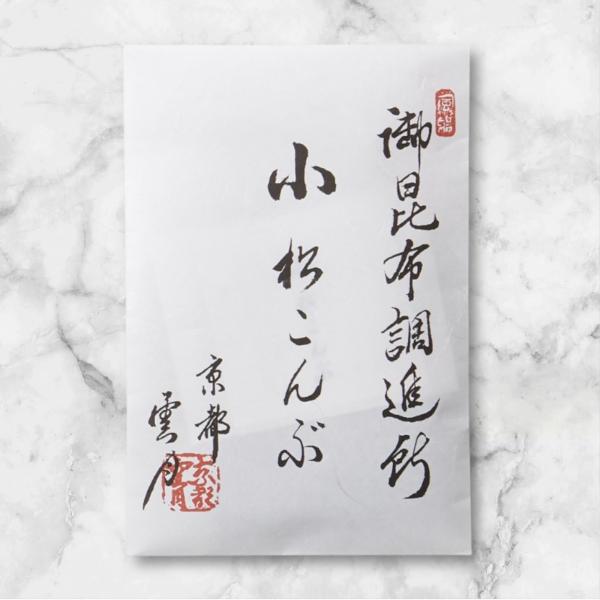 御昆布調進所
小松こんぶ
京都
雲月
京都
雲月